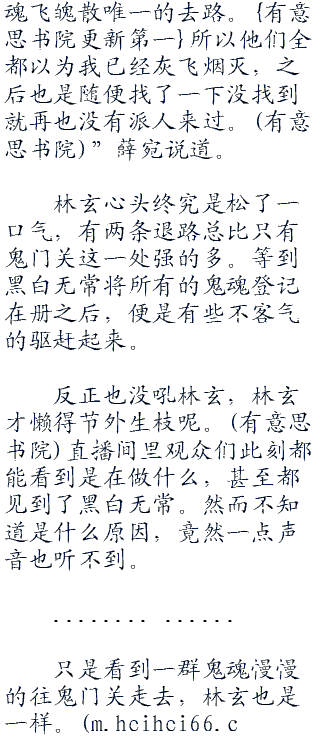 魂飞魄散唯一的去路。{有意
思书院更新第一}所以他们全
都以为我已经灰飞烟灭，之
后也是随便找了一下没找到
就再也没有派人来过。(有意
思书院)”薛宛说道。
林玄心头终究是松了一
口气，有两条退路总比只有
鬼门关这一处强的多。等到
黑白无常将所有的鬼魂登记
在册之后，便是有些不客气
的驱赶起来。
反正也没吼林玄，林玄
才懒得节外生枝呢。(有意思
书院)直播间里观众们此刻都
能看到是在做什么，甚至都
见到了黑白无常。然而不知
道是什么原因，竟然一点声
音也听不到。
........ ......
只是看到一群鬼魂慢慢
的往鬼门关走去，林玄也是
一样。(m.hcihci66.c